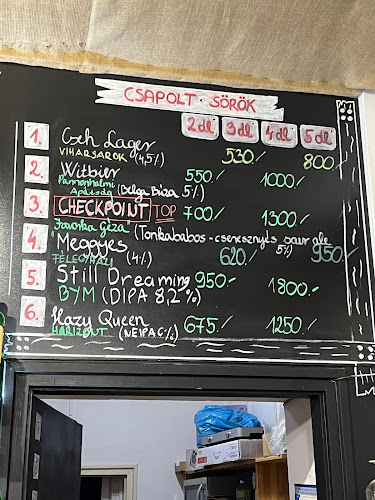 CSAPOLT · SÖRÖK
2dl 3dl 4dl 5dl
1. Cseh Lager 530.- 800.-
VIHARSAROK (4,5%)
2. Witbier 550.- 1000.-
Pannonhalmi Apátság (Belga búza 5%)
3. CHECKPOINT TOP 700.- 1300.-
Fővonka Géza (Tonkababos-cseresznyés sour ale 5%)
4. Meggyes 620.- 950.-
FÉLEGYHÁZI (4%)
5. Still Dreaming 950.- 1800.-
BYM (DIPA 8,2%)
6. Hazy Queen 675.- 1250.-
HORIZONT (NEIPA 6%)